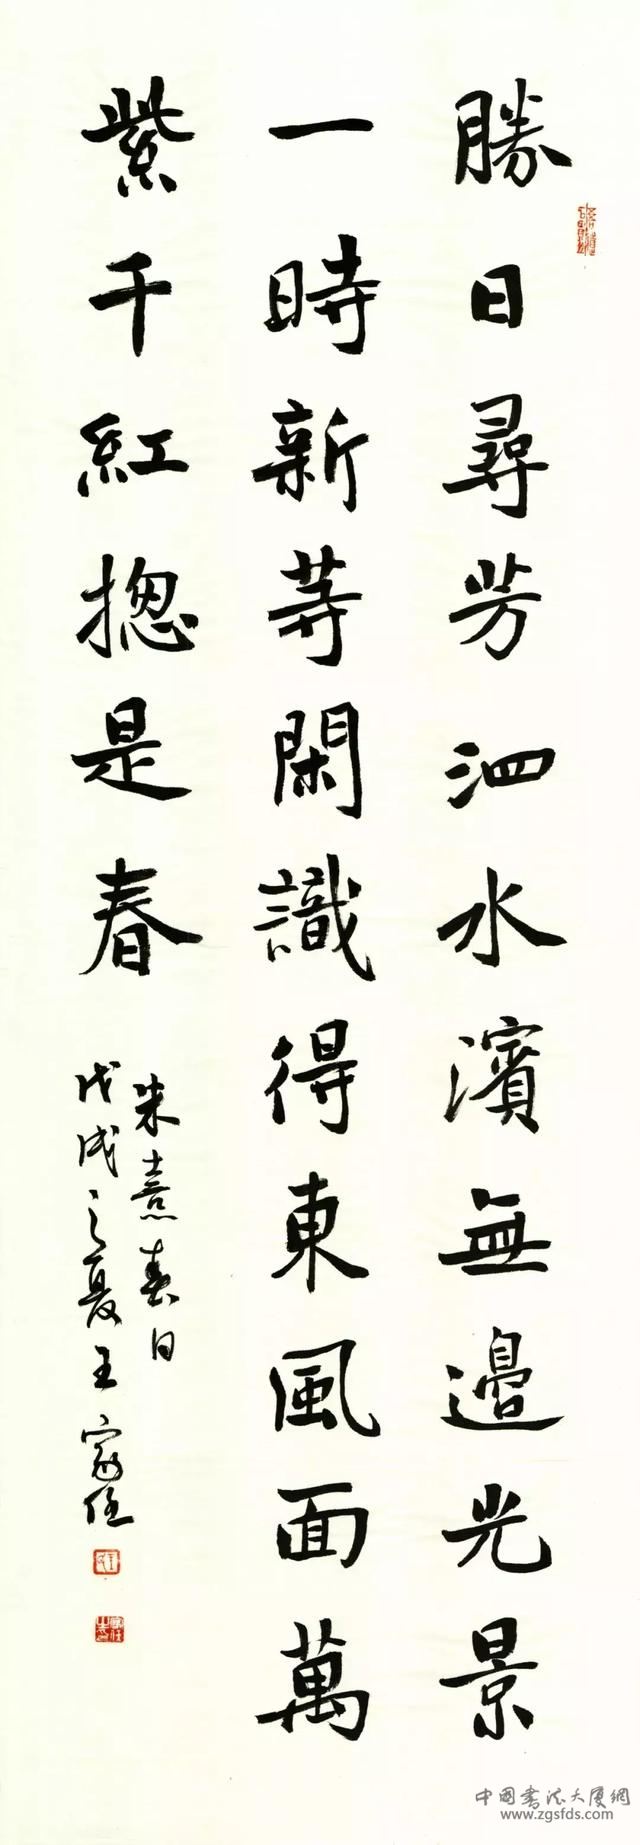 勝日尋芳泗水濱無邊光景
一時新等閑識得東風面萬
紫千紅摠是春
朱熹春日
戊戌之夏王家任
中國書法大厦網
www.zgsfds.com